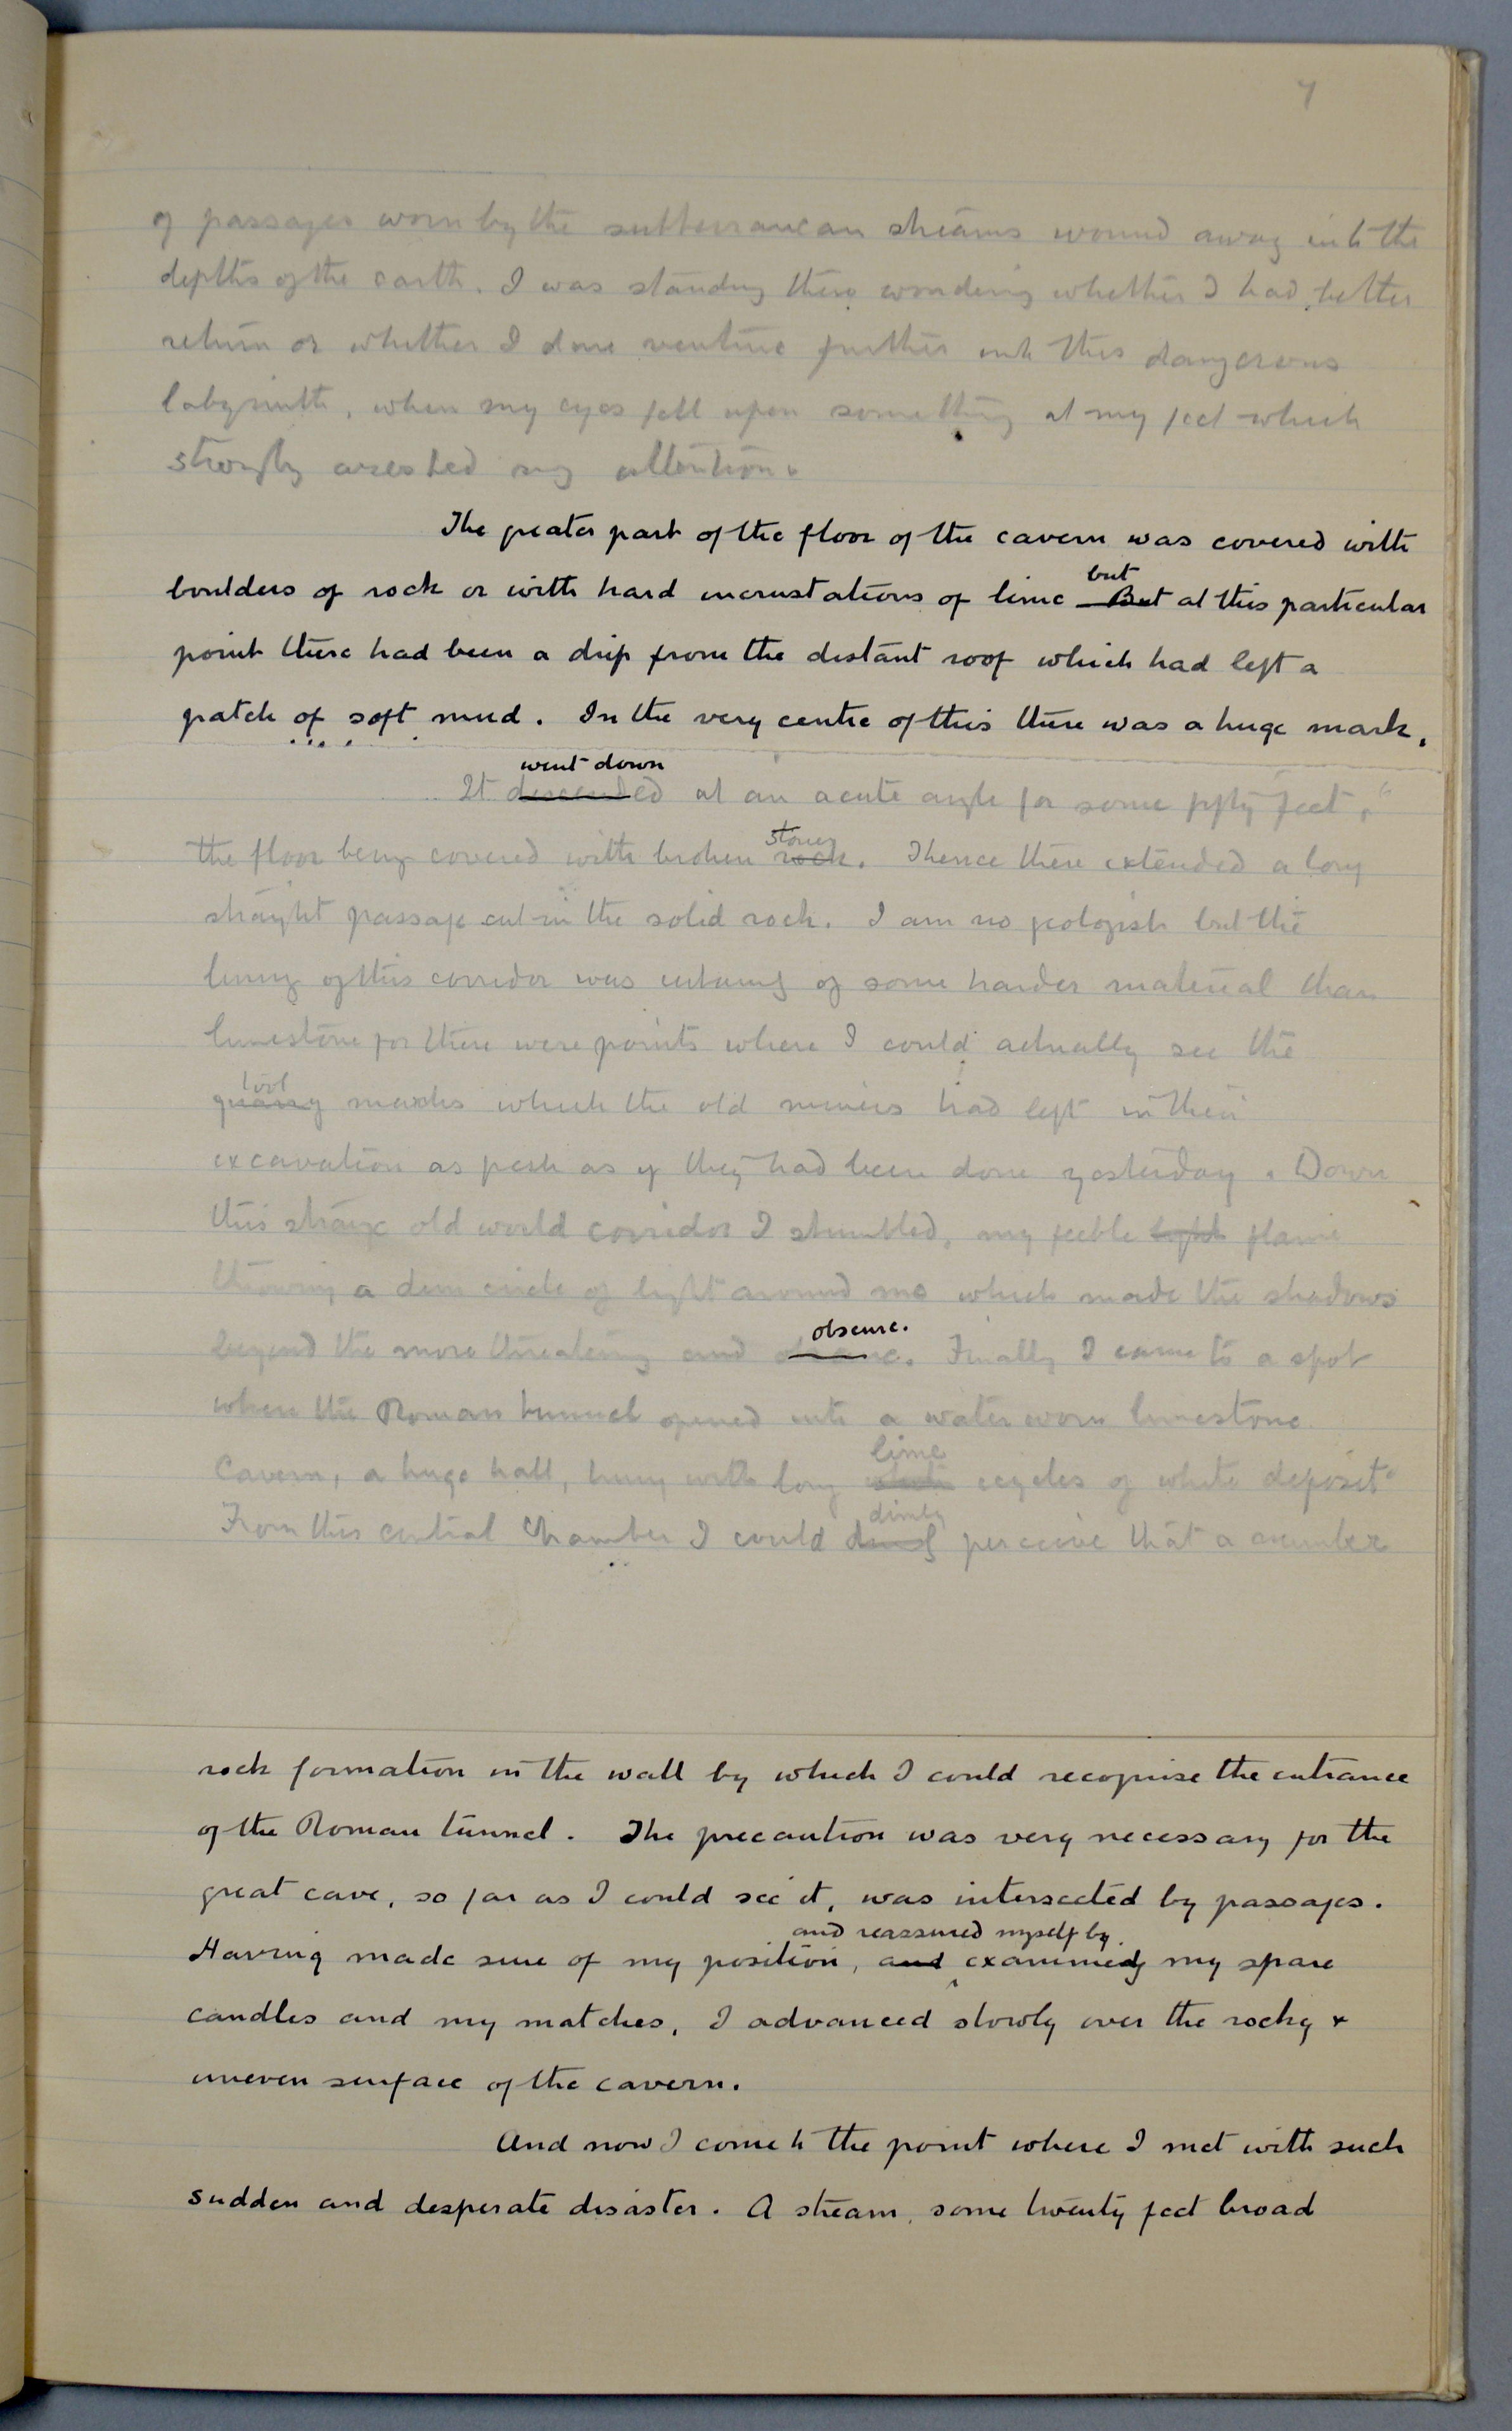 7
of passages worn by the subterranean streams wound away into the
depths of the earth. I was standing there wondering whether I had better
return or whether I dare venture further into this dangerous
labyrinth, when my eyes fell upon something at my feet which
strongly arested my attention.
The greater part of the floor of the cavern was covered with
but
boulders of rock or with hard incrustations of lime But at this particular
point there had been a drip from the distant roof which had left a
patch of soft mud. In the very centre of this there was a huge mark,
went down
It descended at an acute angle for some fifty feet,
stones
the floor being covered with broken rock. Thence there extended a long
straight passage cut in the solid rock. I am no geologist but the
lining of this corridor was certainly of some harder material than
limestone for there were points where I could actually see the
tool
quarry marks which the old miners had left in their
excavation as fresh as if they had been done yesterday. Down
this strange old world corridor I stumbled, my feeble light flame
throwing a dim circle of light around me which made the shadows
obscure.
beyond the more threatening and obscure. Finally I came to a spot
where the Roman tunnel opened into a water worn limestone
lime
Cavern, a huge hall, hung with long white icycles of white deposit
dimly
From this central Chamber I could dimly perceive that a number
rock formation in the wall by which I could recognise the entrance
of the Roman tunnel. The precaution was very necessary for the
great cave, so far as I could see it, was intersected by passages.
and reassured myself by
Having made sure of my position, and examining my spare
candles and my matches, I advanced slowly over the rocky &
uneven surface of the cavern.
And now I come to the point where I met with such
sudden and desperate disaster. A stream, some twenty feet broad